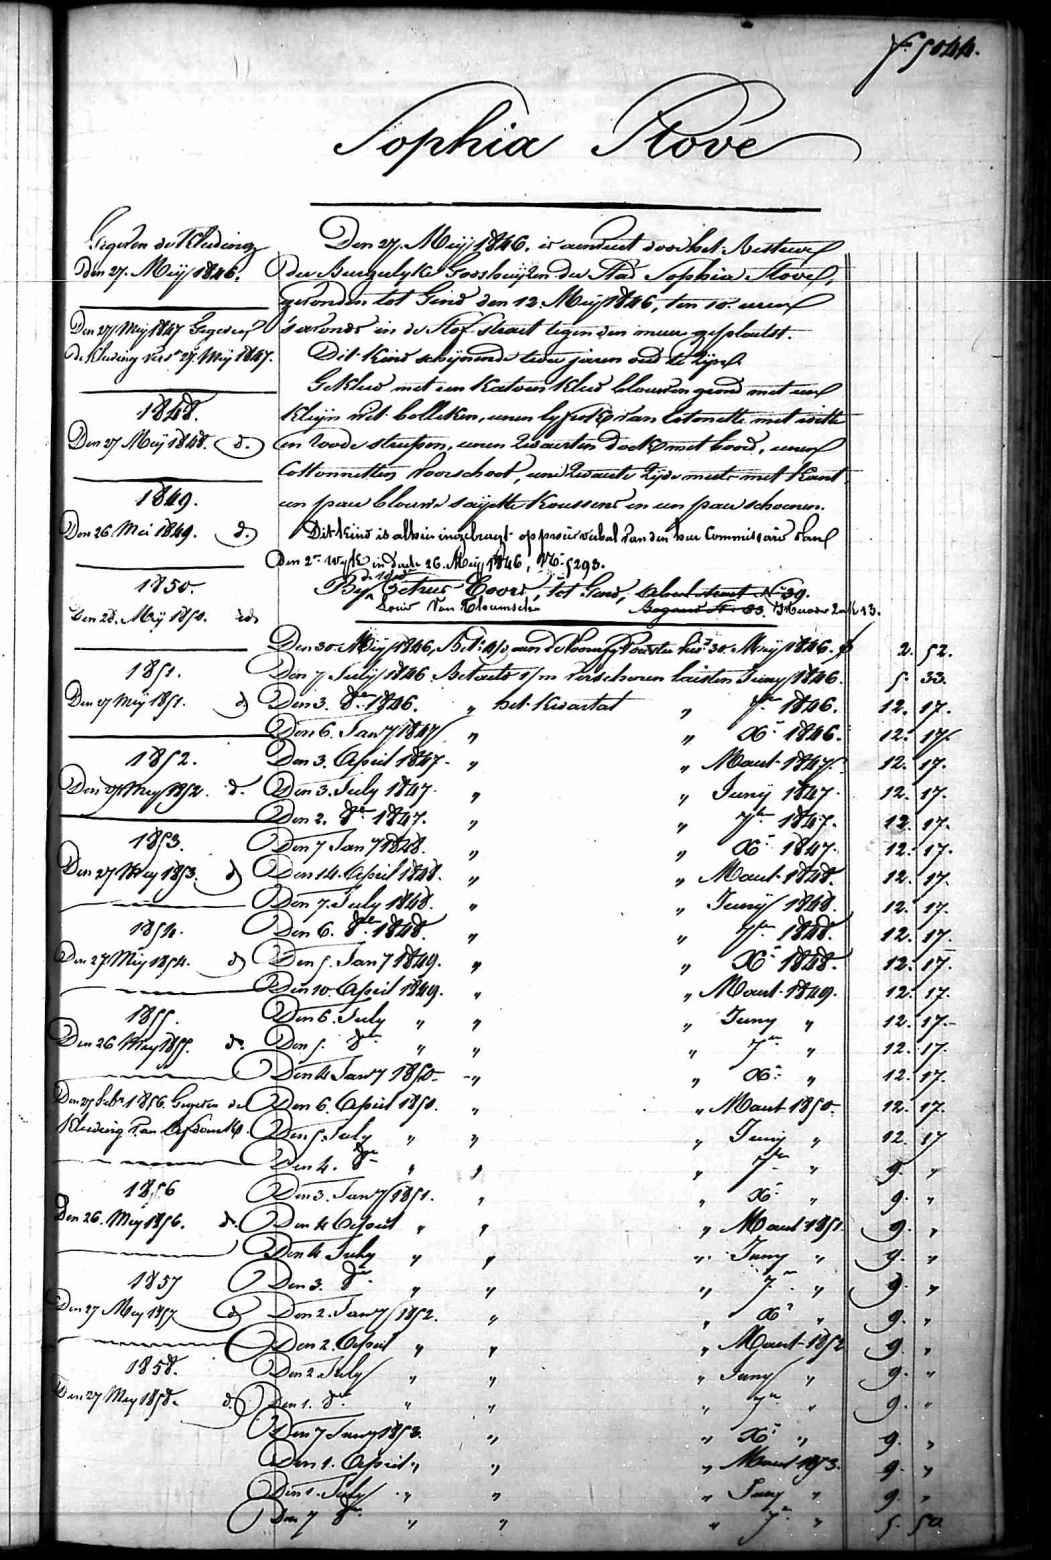 f. 5044.
Sophia Stove
Gegeven de Kleeding
den 27. Meij 1846.
Den 27 Meij 1847 Gegeven
de Kleeding vers. 27. Meij 1847.
1848.
Den 27 Meij 1848. d.
1849.
Den 26. Mei 1849. d.
1850.
Den 28. Meij 1850.
1851.
Den 27 Meij 1851. d
1852.
Den 27 Mey 1852. d.
1853.
Den 27 Mey 1853. d
1854.
Den 27 Meij 1854. d
1855.
Den 26 Mey 1855. d.
Den 27 feb. 1856. Gegeven de
Kleeding van
1856
Den 26. Mey 1856. d.
1857
Den 27 Mey 1857. d
1858.
Den 27 Mey 1858. d.
Den 27. Meij 1846. is aenveert door het Bestuer
der Burgelyke Godshuyzen der Stad Sophia Stove,
gevonden tot Gend den 12. Meij 1846, ten 10. uren
's avonds in de Hof straet tegen den muer geplaetst.
Dit kind schijnende twee jaren oud te zijn.
Gekleed met een katoen kleed blauwen grond met een
kleijn wit bolleken, eenen van cotonette met witte
en roode streepen, eenen zwarten doek met boord, eenen
Cottonnetten voorschoot, een zwarte zijde muts met kant,
een paer blauwe sayette koussens en een paer schoenen.
Dit kind is alhier ingebragt op proces verbael van den heer Commissaris van
den 2.e wyk in date 26. Meij 1846, N.o 5293.
Bij Petrus Coors, tot Gend,
Louis Van
Begaard N.o 83.
Den 30. Meij 1846, Bet. aen de 30. Meij 1846. f 2. 52.
Den 7 July 1846. Betaelt 1/m verschenen laetsten Juny 1846. 5. 33.
Den 3. 8.er 1846. " het kwartael " 7.er 1846. 12. 17.
Den 6. Jan.y 1847 " " X.r 1846. 12. 17
Den 3. April 1847. " " Maart 1847. 12. 17.
Den 3. July 1847. " " Junij 1847. 12. 17.
Den 2. 8.er 1847. " " 7.er 1847. 12. 17.
Den 7 Jan.y 1848. " " X.r 1847. 12. 17.
Den 14. April 1848. " " Maart 1848. 12. 17.
Den 7. July 1848. " " Junij 1848. 12. 17.
Den 6. 8.er 1848. " " 7.er 1848. 12. 17.
Den 5. Jan.y 1849. " " X.r 1848. 12. 17.
Den 10. April 1849. " " Maart 1849. 12. 17.
Den 6. July " " " Juny " 12. 17.
Den 5. 8.er " " " 7.er " 12. 17.
Den 4 Jan.y 1850. " " X.r " 12. 17.
Den 6. April 1850. " " Maart 1850. 12. 17.
Den 5. July " " " Junij " 12. 17
Den 4. 8.er " " " 7.er " 9. "
Den 3. Jan.y 1851. " " X.r " 9. "
Den 4 April " " " Maart 1851 9. "
Den 4 July " " " Juny " 9. "
Den 3. 8.er " " " 7.er " 9. "
Den 2. Jan.y 1852. " " X.r " 9. "
Den 2. April " " " Maart 1852 9. "
Den 2 July " " " Juny " 9. "
Den 1. 8.er " " " 7.er " 9. "
Den 7 Jan.y 1853. " " X.r " 9. "
Den 1. April " " " Maart 1853. 9. "
Den 1. July " " " Juny " 9. "
Den 7 8.er " " " 7.er " 5. 50